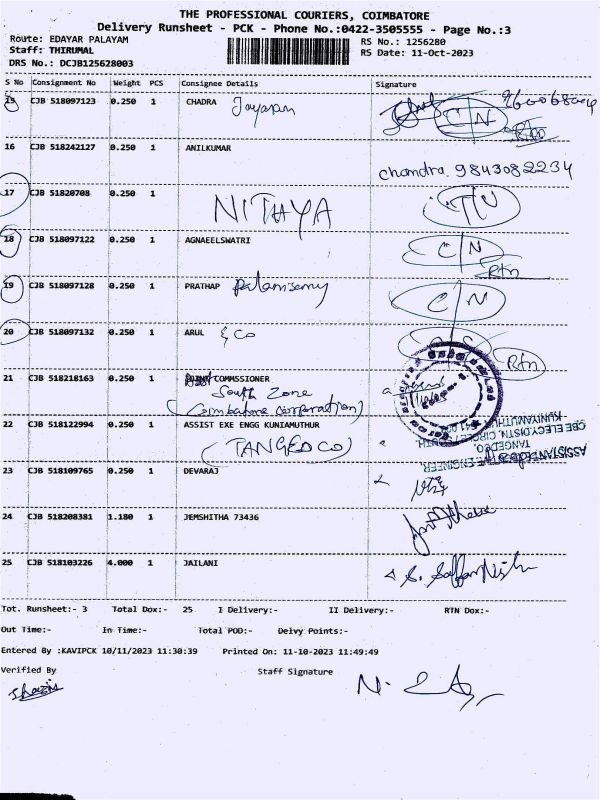 THE PROFESSIONAL COURIERS, COIMBATORE
Delivery Runsheet - PCK - Phone No.:0422-3505555 - Page No.:3
Route: EDAYAR PALAYAM
RS No.: 1256280
Staff: THIRUMAL
RS Date: 11-Oct-2023
DRS No.: DCJB125628003
S No Consignment No Weight PCS Consignee Details Signature
15 CJB 518097123 0.250 1 CHADRA C/N
16 CJB 518242127 0.250 1 ANILKUMAR
chandra. 9843082234
17 CJB 51820708 0.250 1 NITHYA
18 CJB 518097122 0.250 1 AGNAEELSWATRI C/N
Rtn
19 CJB 518097128 0.250 1 PRATHAP Palanisamy C/N
20 CJB 518097132 0.250 1 ARUL & Co
Rtn
21 CJB 518218163 0.250 1 COMMSSIONER
South Zone
(Coimbatore corporation)
22 CJB 518122994 0.250 1 ASSIST EXE ENGG KUNIAMUTHUR
(TANGEDCO)
23 CJB 518109765 0.250 1 DEVARAJ
24 CJB 518208381 1.180 1 JEMSHITHA 73436
25 CJB 518103226 4.000 1 JAILANI
Tot. Runsheet:- 3 Total Dox:- 25 I Delivery:- II Delivery:- RTN Dox:-
Out Time:- In Time:- Total POD:- Delvy Points:-
Entered By :KAVIPCK 10/11/2023 11:30:39 Printed On: 11-10-2023 11:49:49
Verified By
Staff Signature